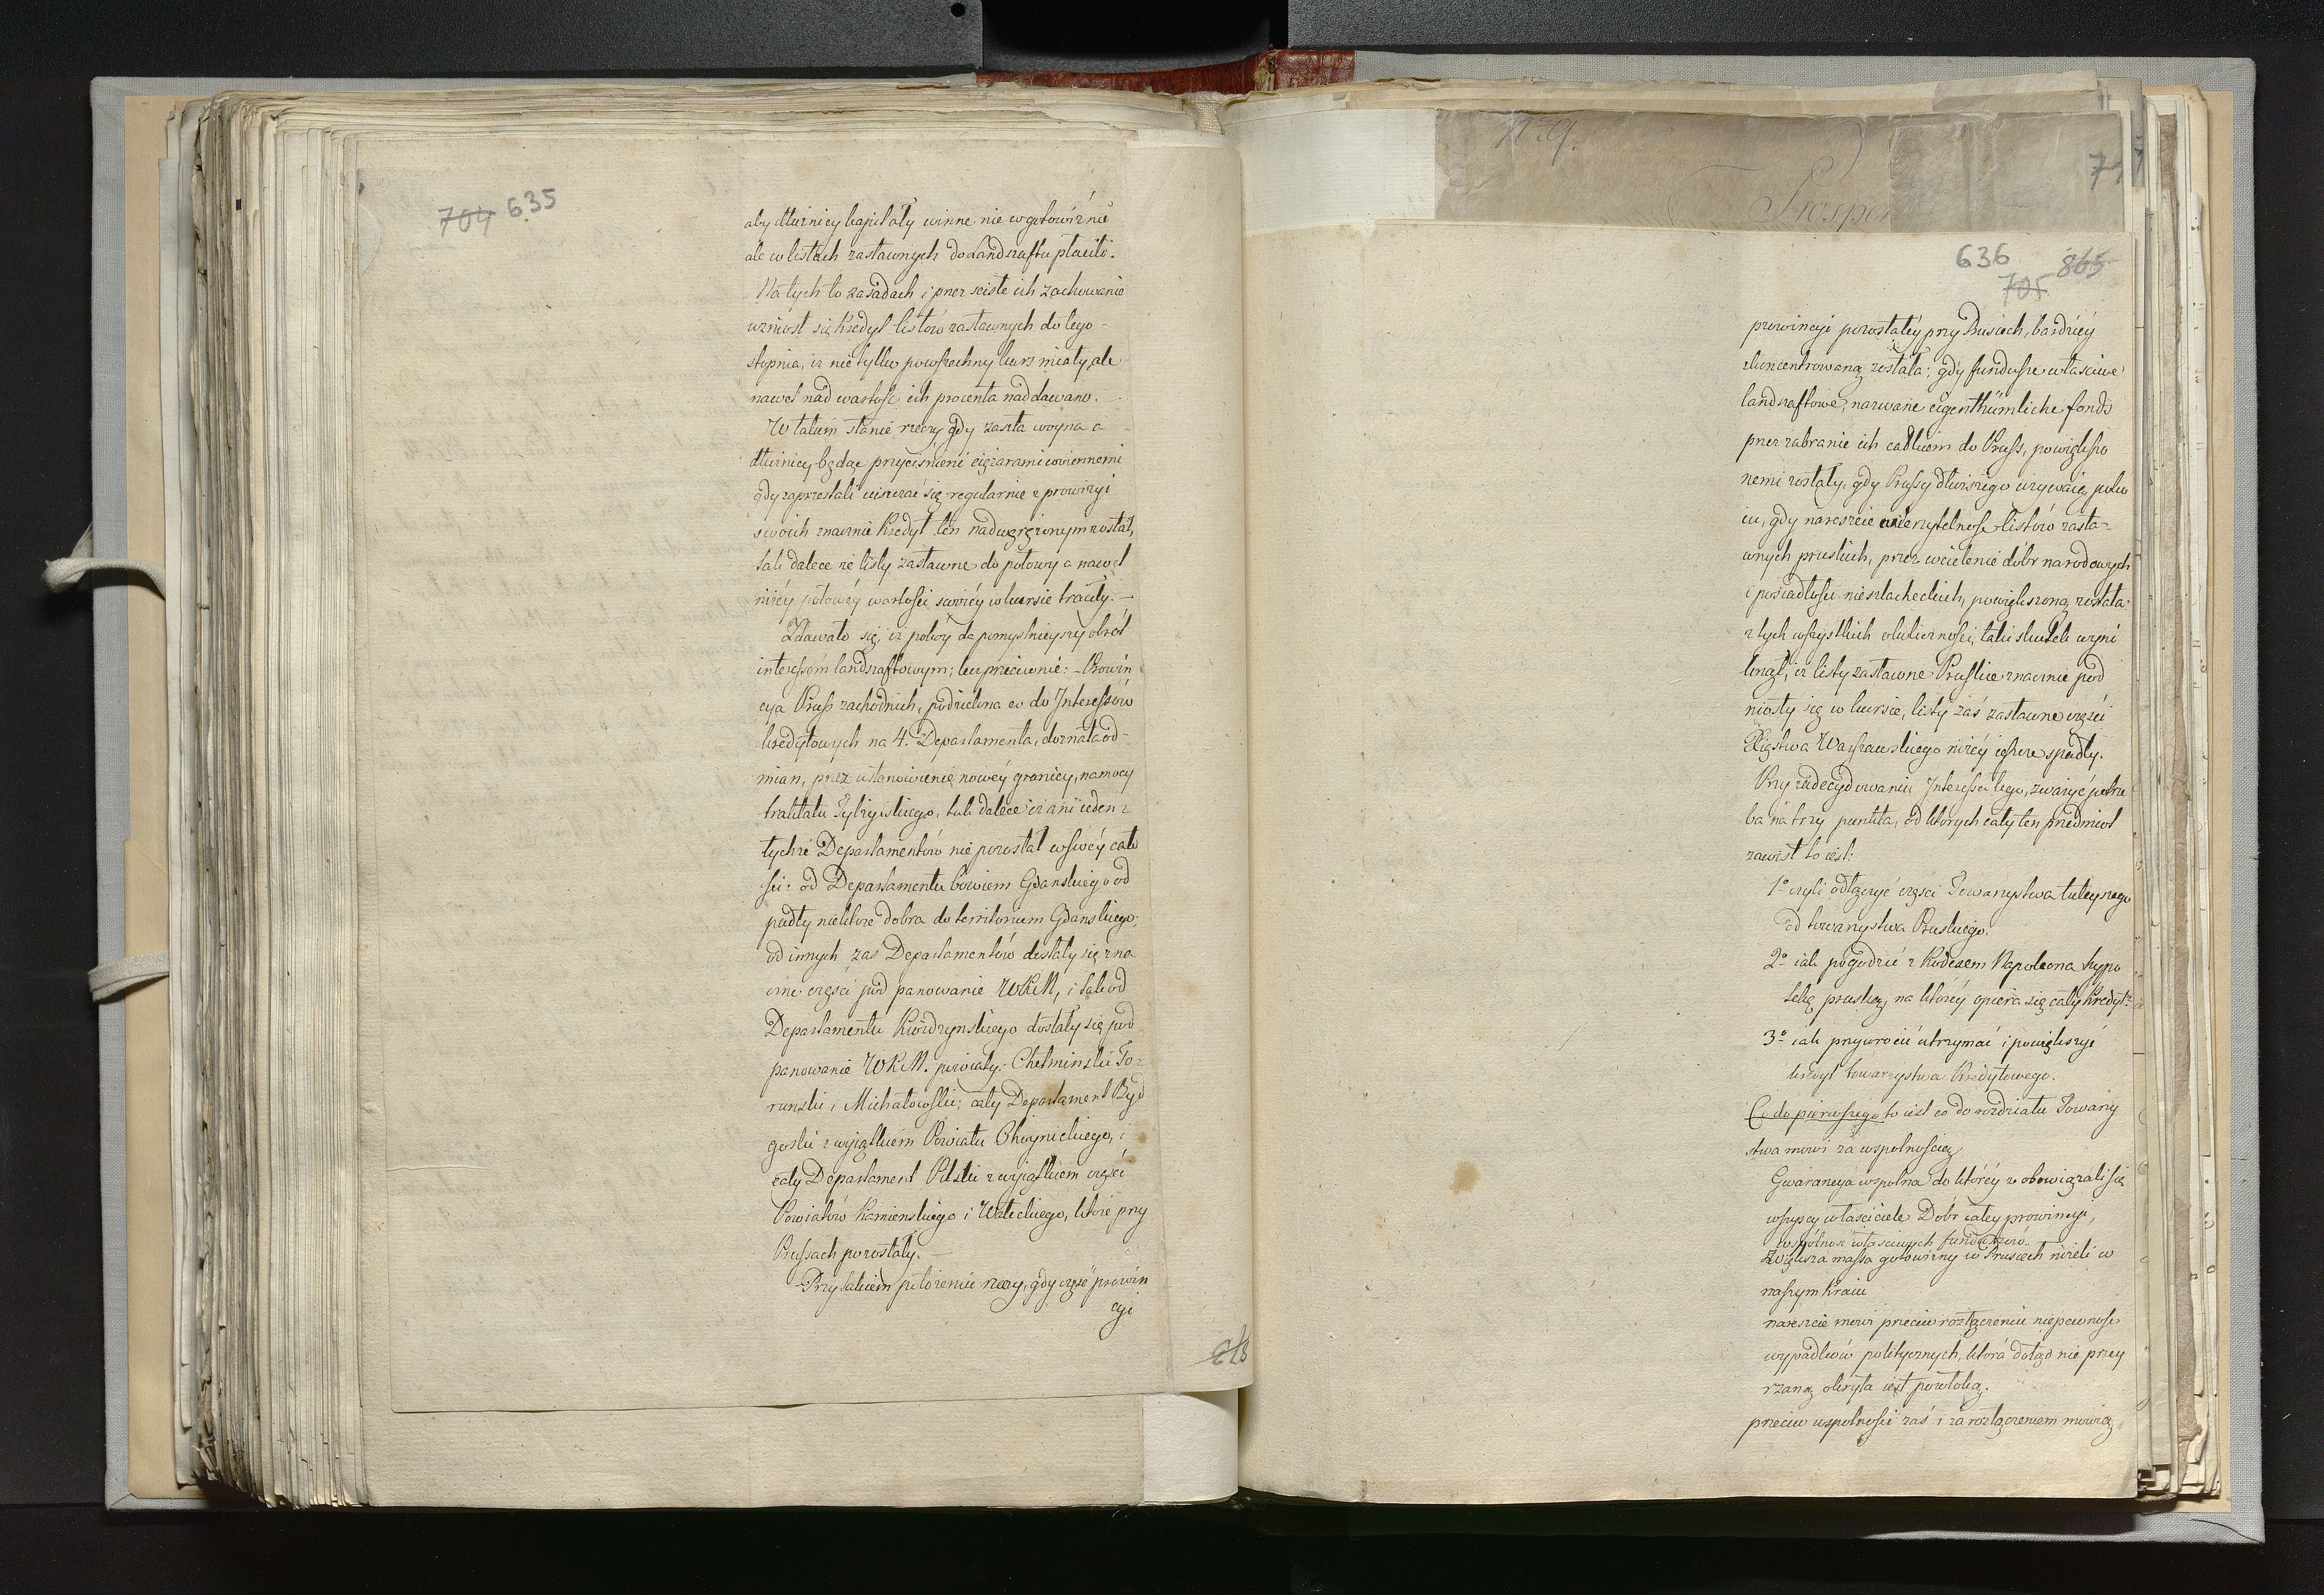 704 635
aby dłużnicy kapitały winne nie w gotowiźnie
ale w listach zastawnych do Landszaftu płacili.
Na tych to zasadach i przez scisłe ich zachowanie
wzniósł się Kredyt listów zastawnych do tego
stopnia, iż nietylko powszechny kurs miały, ale
nawet nad wartość ich procenta naddawano.
W takim stanie rzeczy gdy zaszła woyna a
dłużnicy będąc przyciśnieni ciężarami woiennemi
gdy zaprzestali uiszczać się regularnie z prowizyi
swoich znacznie Kredyt ten nadwerężonym został,
tak dalece że listy zastawne do połowy a nawet
niżéy połowy wartości swoiéy w kursie traciły. —
Zdawało się, iż pokóy da pomyslnieyszy obrót
interessom landszaftowym; lecz przeciwnie: – Prowin
cya Pruss zachodnich, podzielona co do Interessów
kredytowych na 4. Departamenta, doznała od-
mian, przez ustanowienie nowéy granicy, na mocy
traktatu Tylżyckiego, tak dalece iż ani ieden z
tychże Departamentów nie pozostał w swéy cało
ści: od Departamentu bowiem Gdanskiego od
padły niektóre dobra do territorium Gdanskiego;
od innych zas Departamentów dostały się zna
czne części pod panowanie WKM, i tak od
Departamentu Kwidzynskiego dostały się pod
panowanie WKM. powiaty: Chełminski To-
runski i Michałowski; cały Departament Byd
goski z wyiątkiem Powiatu Choynickiego, i
cały Departament Pilski z wyiątkiem części
Powiatów Kamienskiego i Wałeckiego, które przy
Prussach pozostały. —
Przy takiem położeniu rzeczy, gdy część prowin
cyi
N. 29.
Prospe
71
636 865
705
prowincyi pozostałéy przy Prusiech, bardziéy
skoncentrowaną została; gdy fundusze własciwe
landszaftowe, nazwane eigenthümliche fonds
przez zabranie ich całkiem do Pruss, powiększo
nemi zostały, gdy Prussy dłuższego używaią poko
iu, gdy nareszcie wierzytelność listów zasta-
wnych pruskich, przez wcielenie dóbr narodowych
i posiadłości nieszlacheckich, powiększoną została:
z tych wszystkich okoliczności, taki skutek wyni
knął, iż listy zastawne Pruskie znacznie pod
niosły się w kursie, listy zaś zastawne części
Xięstwa Warszawskiego niżéy ieszcze spadły.
Przy zadecydowaniu Interessu tego, zważyć potrze
ba na trzy punkta, od których cały ten przedmiot
zawisł to iest:
1º czyli odłączyć części Towarzystwa tuteyszego
od towarzystwa Pruskiego.
2º iak pogodzić z Kodexem Napoleona hypo
tekę pruską, na któréy opiera się cały Kredyt.
3º iak przywrócić utrzymać i powiększyć
kredyt towarzystwa Kredytowego.
Co do pierwszego to iest co do rozdziału Towarzy
stwa mówi za wspólnością
Gwarancya wspólna do któréy zobowiązali się
wszyscy właściciele Dóbr całéy prowincyi,
wspólność właściwych funduszów.
Większa massa gotowizny w Prusiech niżeli w
naszym Kraiu
nareszcie mówi przeciw rozłączeniu niepewność
wypadków politycznych, która dotąd nie przey
rzaną okryta iest powłoką.
przeciw wspólności zaś i za rozłączeniem mówią